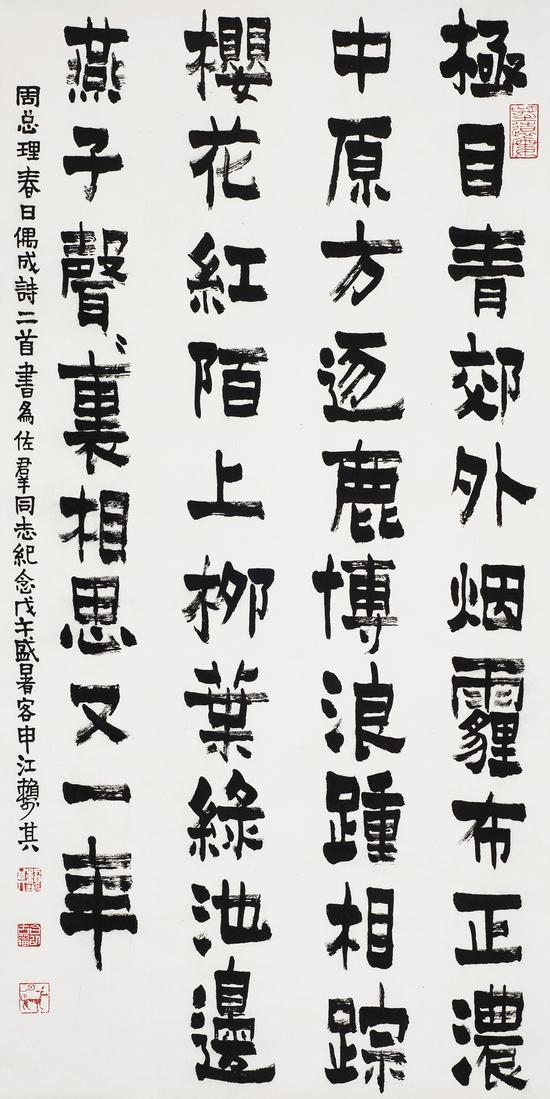 極目青郊外烟霾布正濃
中原方逐鹿博浪踵相踪
櫻花紅陌上柳葉綠池邊
燕子聲〻裏相思又一年
周总理春日偶成詩二首書爲佐羣同志紀念戊午盛暑客申江賴少其